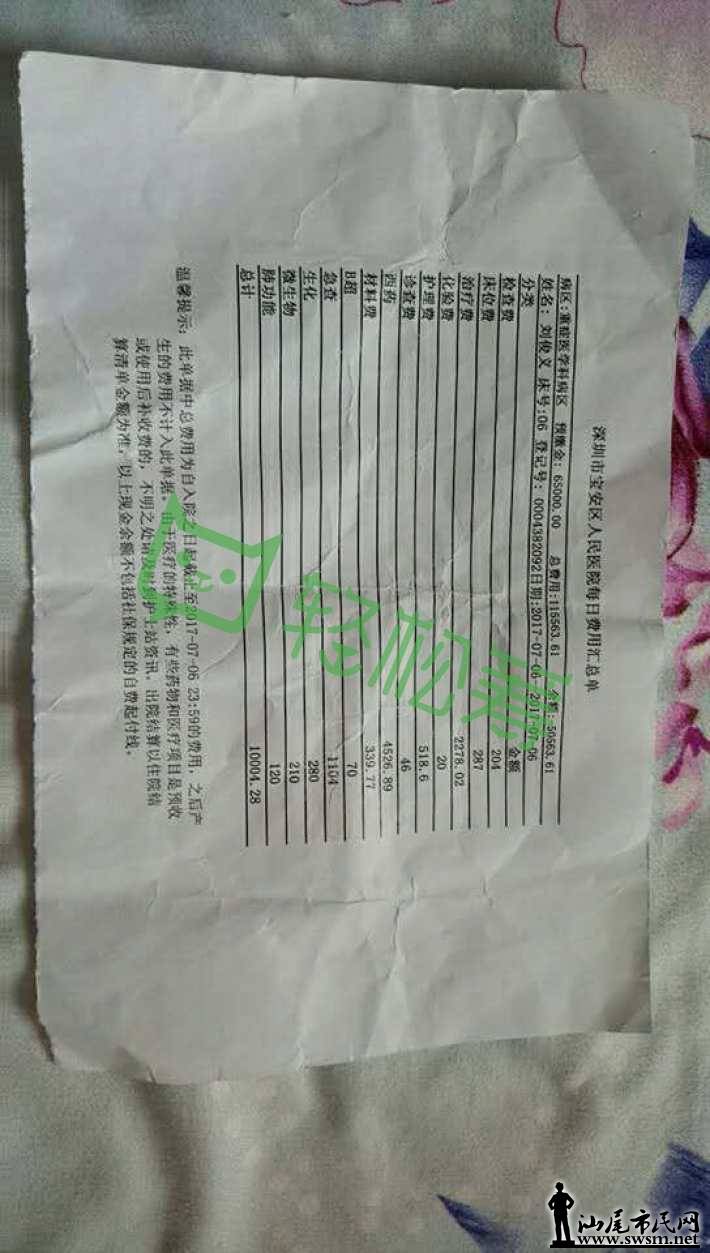 深圳市宝安区人民医院每日费用汇总单
病区:重症医学科病区 预缴金: 65000.00 总费用:115563.61 余额:-50563.61
姓名: 刘俊义 床号:06 登记号: 0004382092日期:2017-07-06 - 2017-07-06
分类 金额
检查费 204
床位费 287
治疗费 2278.02
化验费 20
护理费 518.6
诊查费 46
西药 4526.89
材料费 339.77
B超 70
急查 1104
生化 280
微生物 210
肺功能 120
总计 10004.28
温馨提示: 此单据中总费用为自入院之日起截止至2017-07-06 23:59的费用, 之后产
生的费用不计入此单据。由于医疗的特殊性, 有些药物和医疗项目是预收
或使用后补收费的, 不明之处请及时到护士站资讯。出院结算以住院结
算清单金额为准。以上现金余额不包括社保规定的自费起付线。
轻松筹
汕尾市民网
www.swsm.net